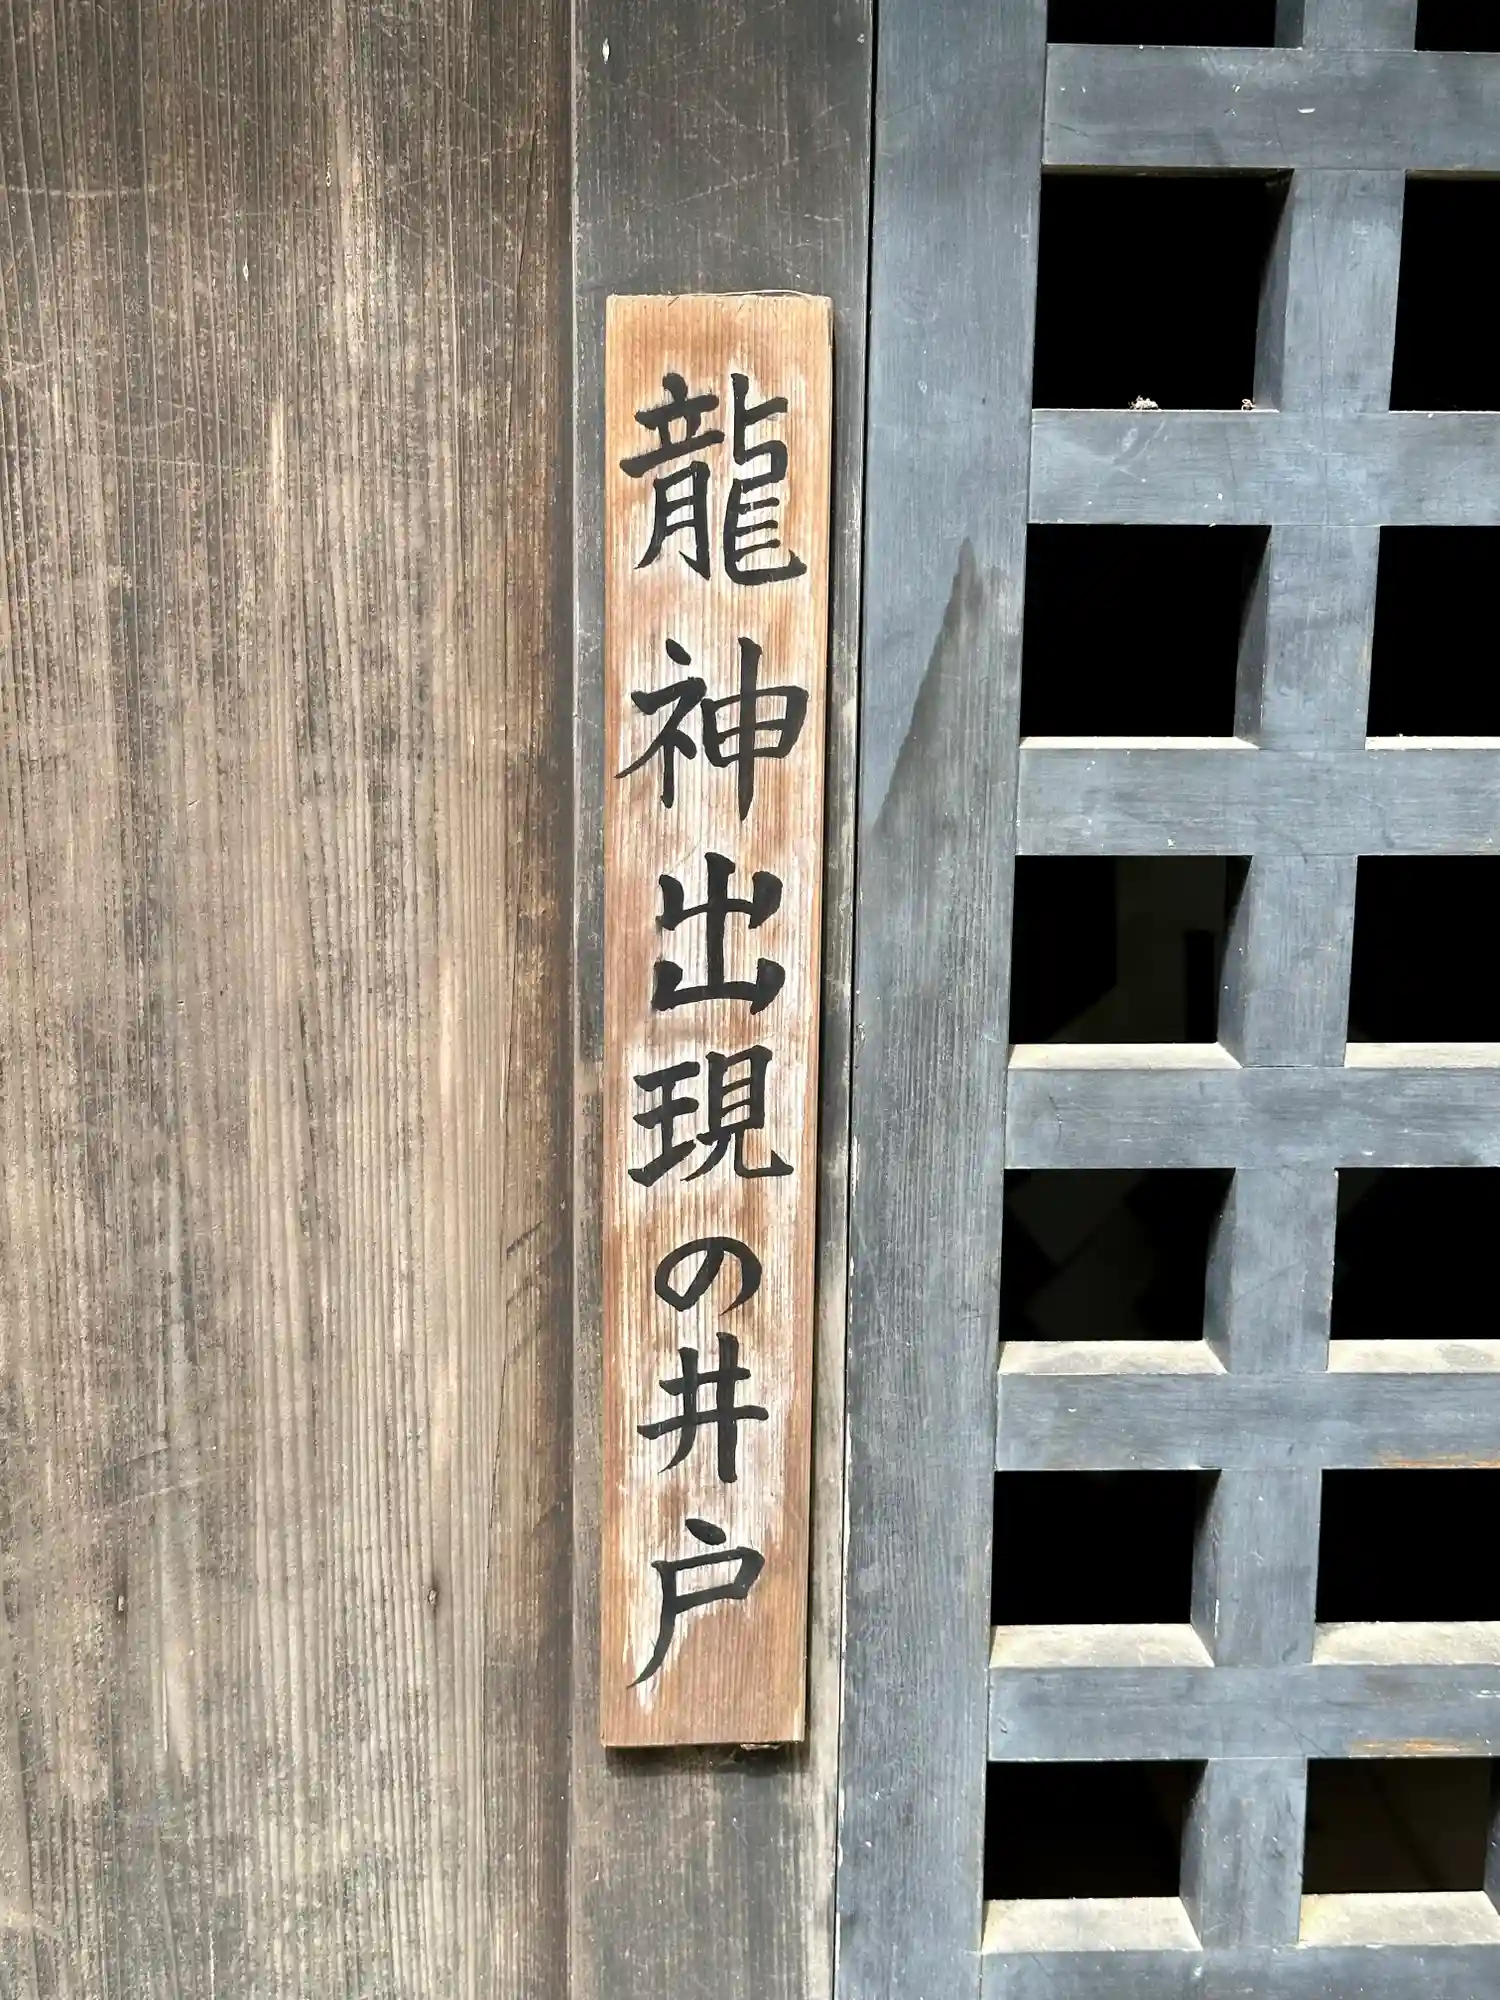 龍神出現の井戸